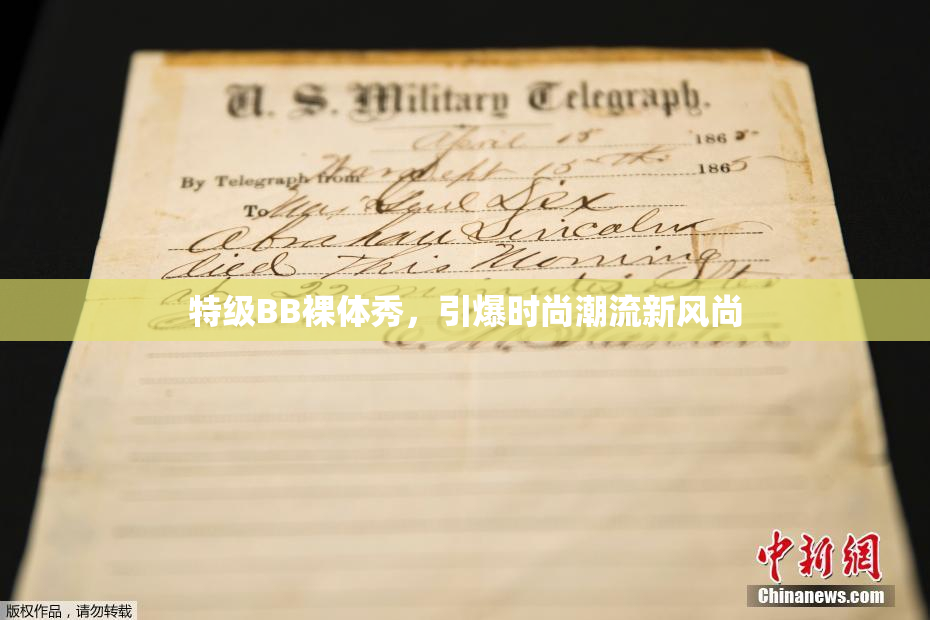 U. S. Military Telegraph.
April 15 1865
By Telegraph from War Dept 15th 1865
To Maj Genl Dix
Abraham Lincoln
died This Morning
at 22 minutes after
特级BB裸体秀，引爆时尚潮流新风尚
中新网
Chinanews.com
版权作品，请勿转载